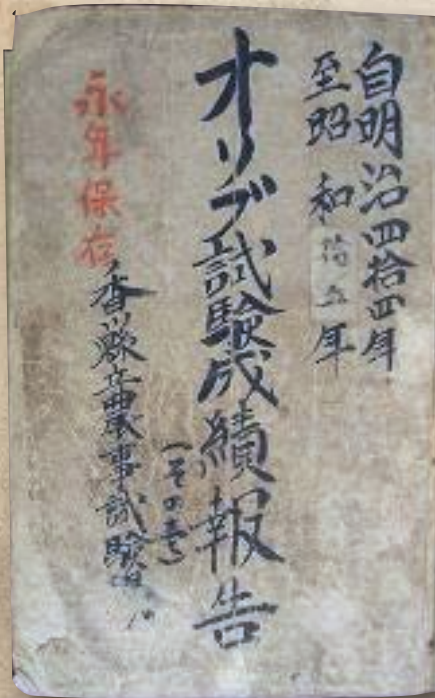 自明治四拾四年
至昭和拾五年
オリブ試験成績報告
(その壱)
永年保存
香川県立農事試験場